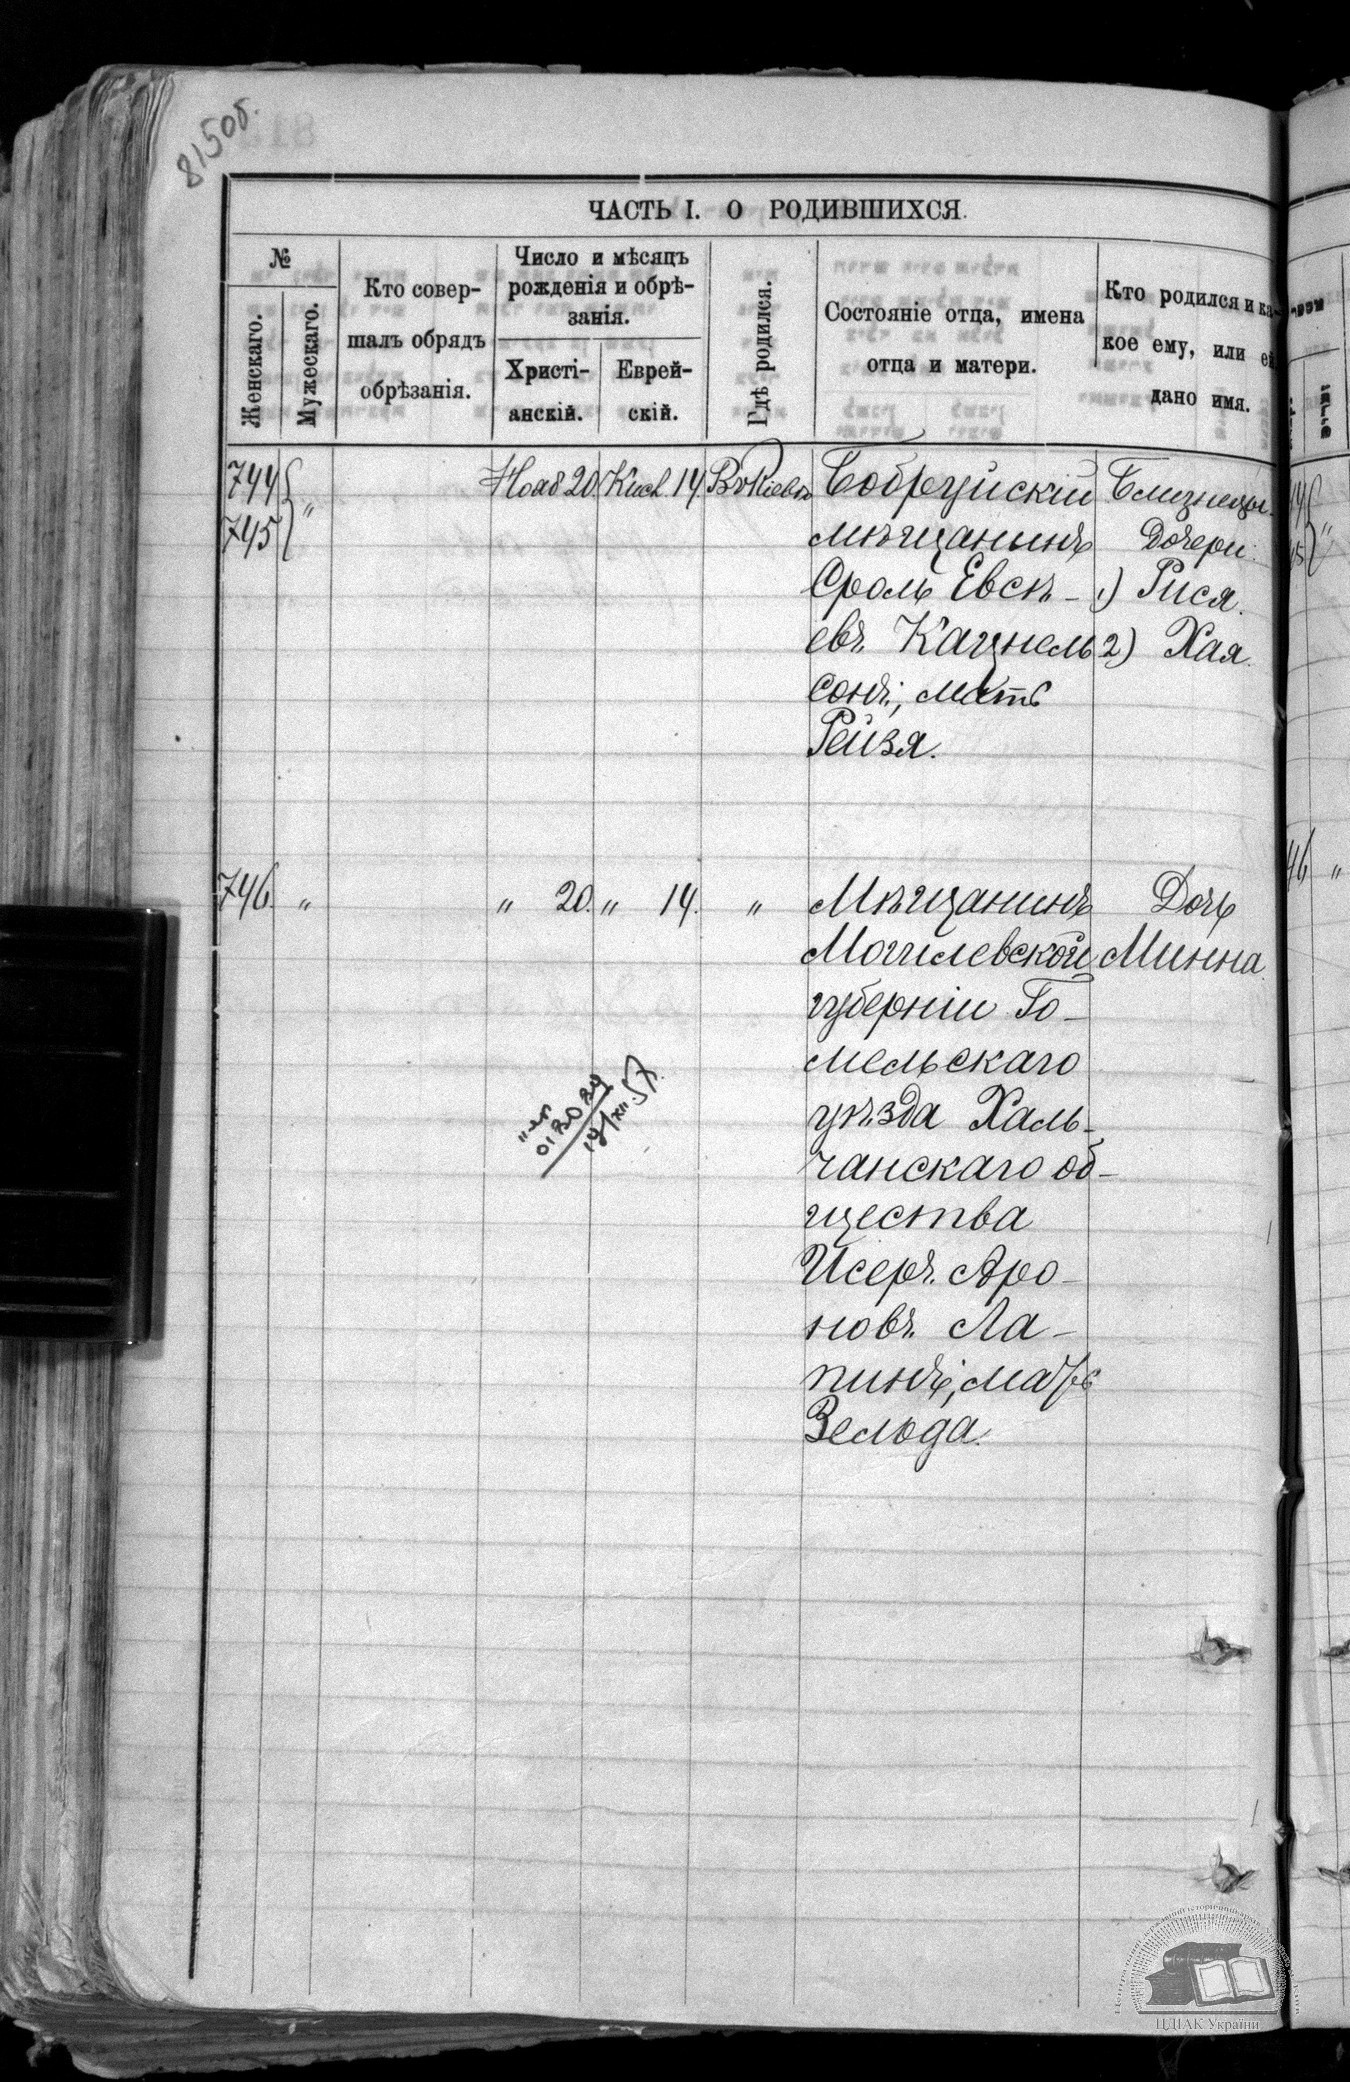 815об.
ЧАСТЬ I. О РОДИВШИХСЯ.
№
Женскаго.
Мужескаго.
Кто совер-
шалъ обрядъ
обрѣзанія.
Число и мѣсяцъ
рожденія и обрѣ-
занія.
Христі-
анскій.
Еврей-
скій.
Гдѣ родился.
Состояніе отца, имена
отца и матери.
Кто родился и ка-
кое ему, или ей
дано имя.
744
745
"
Нояб 20
Кисл. 14
Въ Кіевѣ
Бобруйскій
мѣщанинъ
Сроль Евсѣ-
евъ Кацнель
сонъ, мать
Рейзя.
Близнецы.
Дочери:
1) Рися
2) Хая.
746.
"
" 20.
" 14.
"
Мѣщанинъ
Могилевской
губерніи Го-
мельскаго
уѣзда Халь-
чанскаго об-
щества
Исеръ Аро-
новъ Ла-
пинъ, мать
Зельда.
Дочь
Минна.
ЦДІАК України